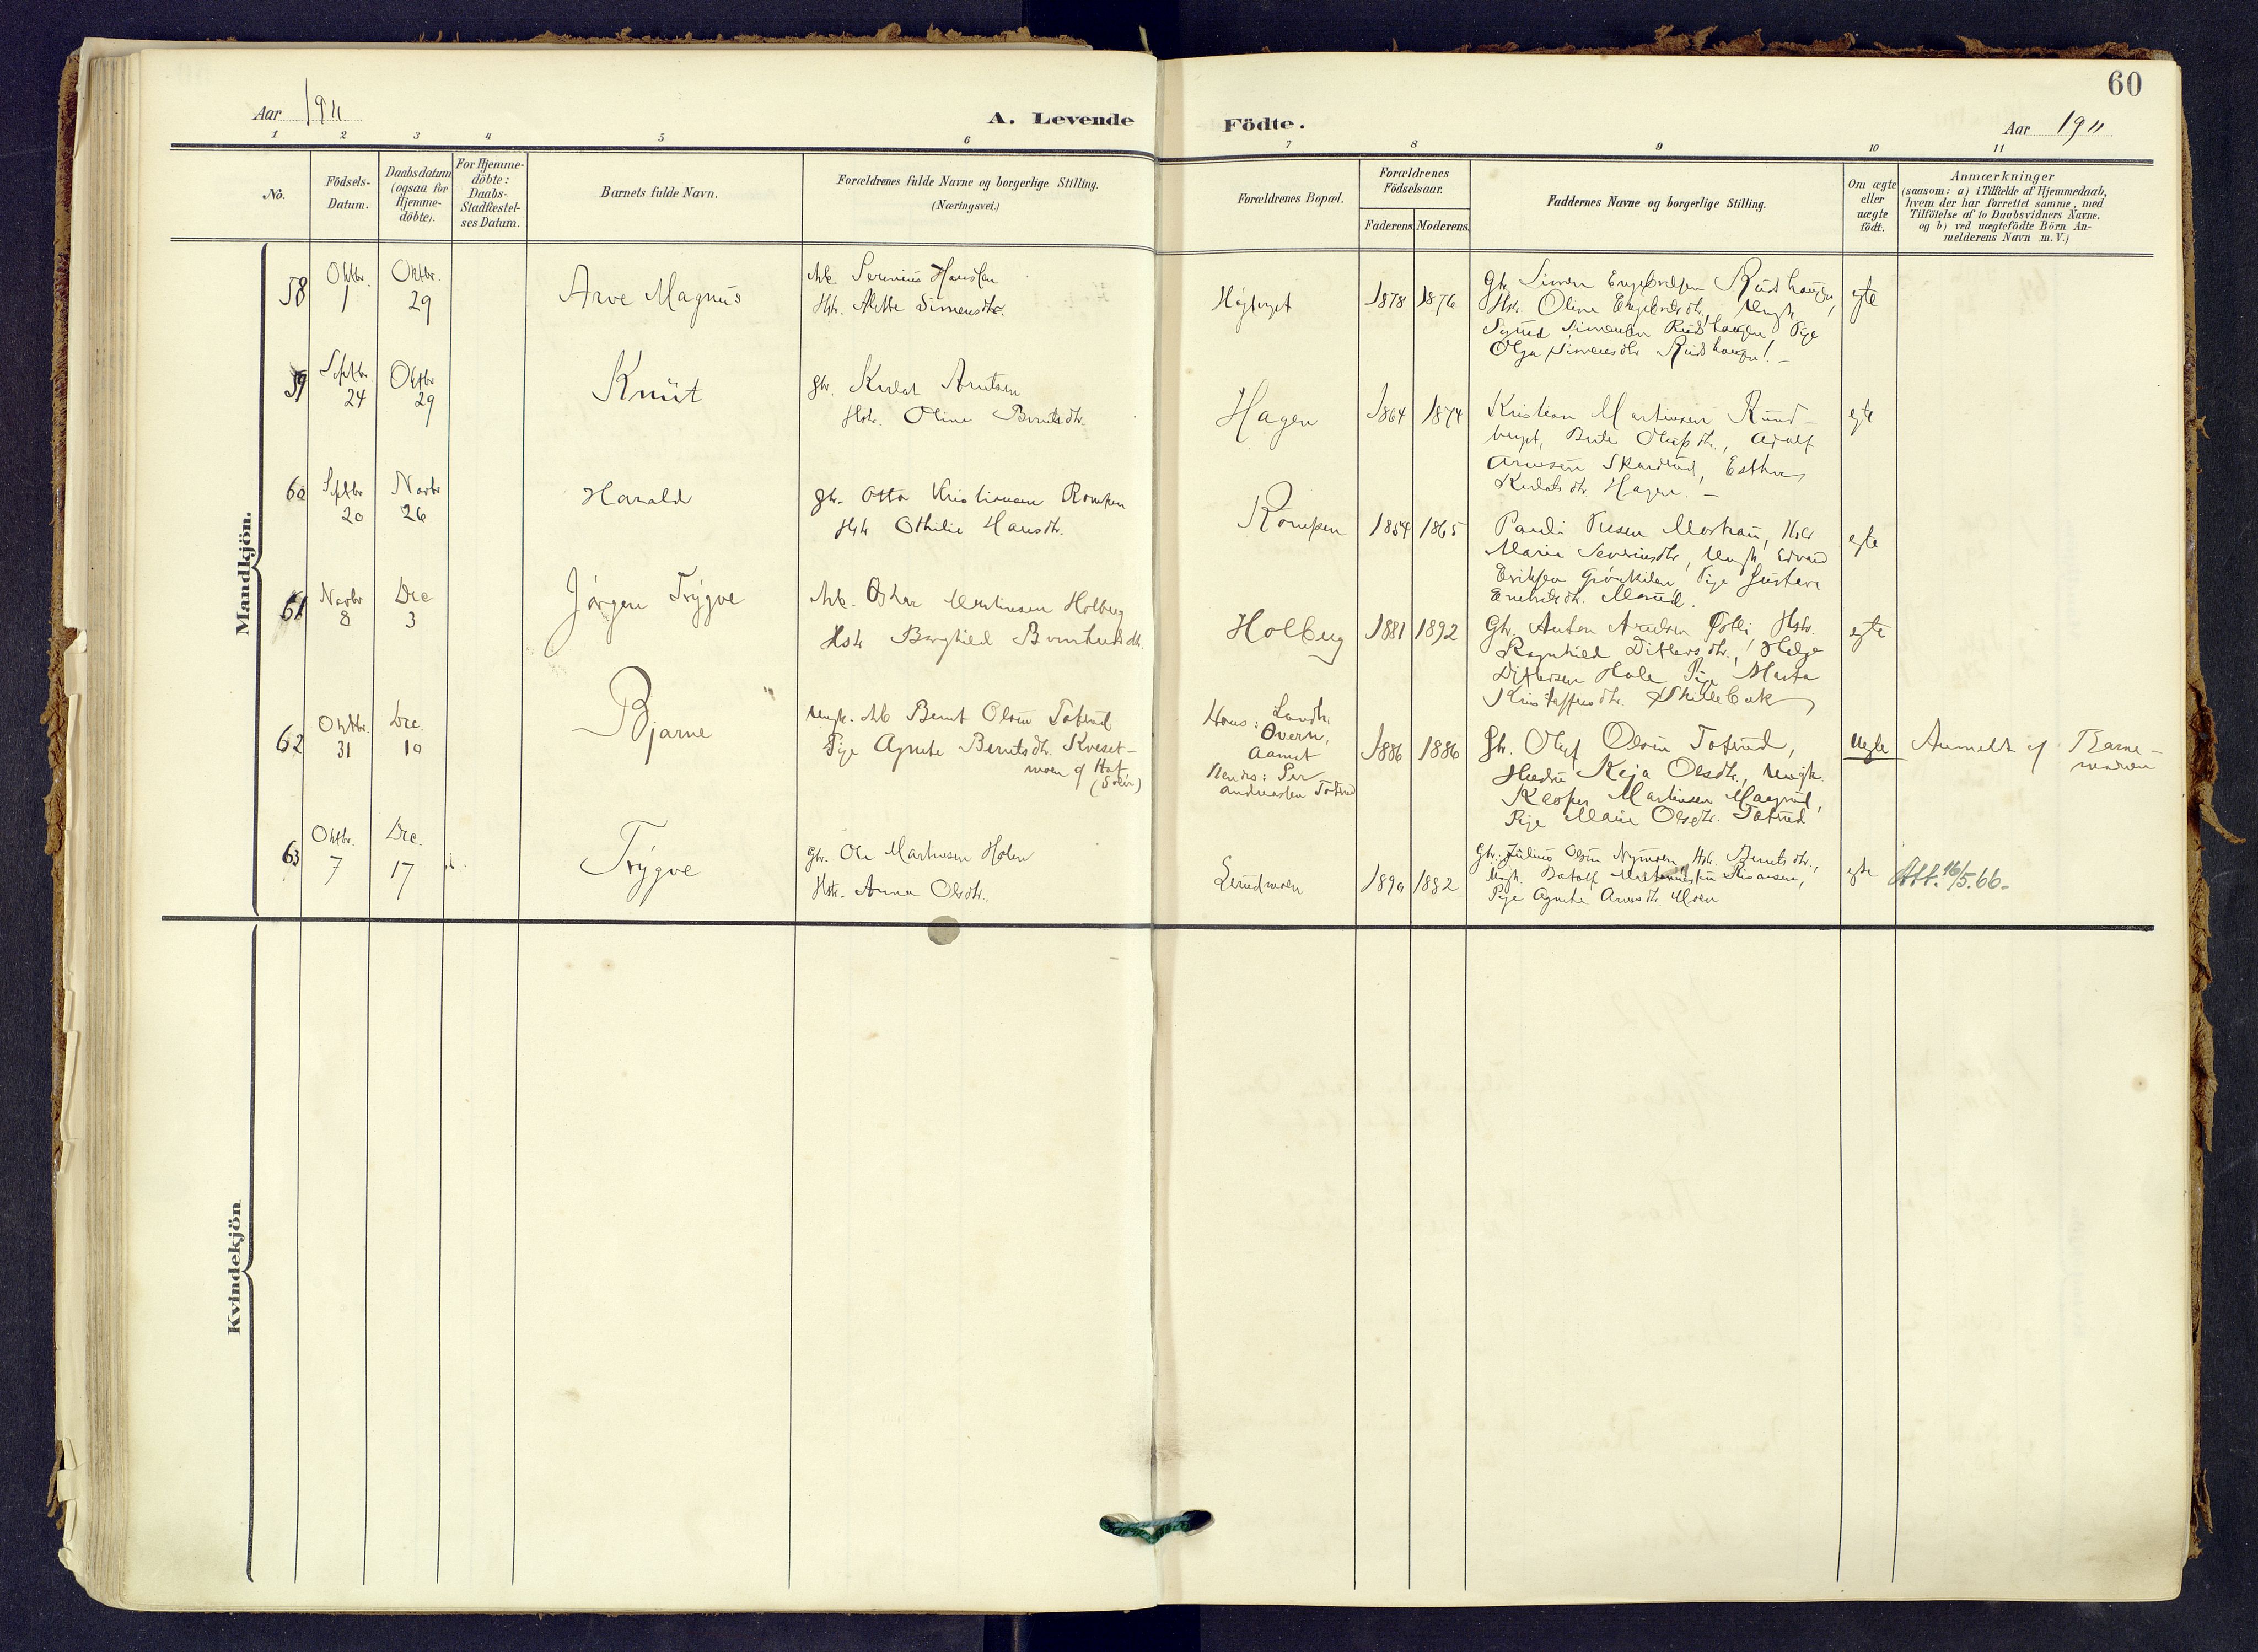 60
Aar 1911
A. Levende Födte.
Aar 1911
1 2 3 4 5 6 7 8 9 10 11
No.
Födsels-
Datum.
Daabsdatum
(ogsaa for
Hjemme-
döbte).
For Hjemme-
döbte:
Daabs-
Stadfæstel-
ses Datum.
Barnets fulde Navn.
Forældrenes fulde Navne og borgerlige Stilling.
(Næringsvei.)
Forældrenes Bopæl.
Forældrenes
Födselsaar.
Faderens Moderens
Faddernes Navne og borgerlige Stilling.
Om ægte
eller
uægte
födt.
Anmærkninger
(saasom: a) i Tilfælde af Hjemmedaab,
hvem der har forrettet samme, med
Tilföielse af to Daabsvidners Navne.
og b) ved uægtefödte Börn An-
melderens Navn m. V.)
Mandkjön.
58
Oktbr.
1
Oktbr.
29
Arve Magnus
Hansen
Hstr. Alette Simensdtr.
1878 1876
Gbr. Simen Engebretsen Rudshaugen,
Hstr. Oline Engebretsdtr., Ungk.
Simensen Rudshaugen, Pige
Olga Simensdtr. Rudshaugen. -
egte
59
Septbr.
24
Oktbr
29
Knut
Gbr. Arntsen
Hstr. Oline Berntsdtr.
Hagen
1864 1874
Kristian Martinsen Rund-
berget, Berte Olsdtr., Adolf
Arnesen Skardrud, Esther
Hagen. -
egte
60
Septbr
20
Novbr
26
Harald
Gbr. Otto Kristiansen Rompen
Hstr Othilie Hansdtr.
Rompen
1854 1865
Pauli
Maria Severinsdtr, Ungk Edvard
Eriksen Pige Gustava
egte
61
Novbr
8
Dec
3
Jörgen Trygve
Arb. Oskar Martinsen Holberg
Hstr Borghild
Holberg
1881 1892
Gbr. Anton Hstr.
Ragnhild Ditlevsdtr., Helge
Ditlevsen Hole Pige Marta
Kristoffersdtr. Skillebæk
egte
62
Oktbr.
31
Dec.
10
Bjarne
Ungk. Arb Bernt Olsen Tofsrud
Pige Agnete Berntsdtr. Kveset-
moen af Hof
(Solör)
Hans:
Övern,
Aamot
Hendes: Per
Andreassen
1886 1886
Gbr. Olaf Olsen Tofsrud,
Keja Olsdtr., Ungk.
Kasper Martinsen
Pige Marie Olsdtr. Tofsrud
uegte
Anmeldt af Barne-
moren
63
Oktbr.
7
Dec.
17
Trygve
Gbr. Ole Martinsen Holen
Hstr. Anna Olsdtr.
1890 1882
Gbr. Julius Olsen Nymoen, Hstr. Berntsdtr.,
Ungk.
Pige Agnete Arnesdtr. Moen
egte
Att. 16/5.66.
Kvindekjön